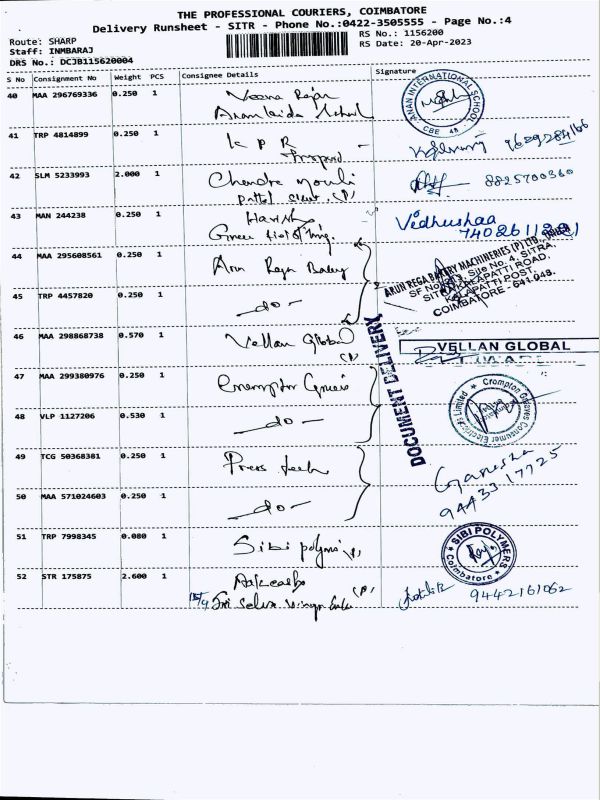 THE PROFESSIONAL COURIERS, COIMBATORE
Delivery Runsheet - SITR - Phone No.:0422-3505555 - Page No.:4
Route: SHARP
RS No.: 1156200
Staff: INMBARAJ
RS Date: 20-Apr-2023
DRS No.: DCJB115620004
S No Consignment No Weight PCS Consignee Details Signature
40 MAA 296769336 0.250 1 Veena Rajan
ANAN INTERNATIONAL SCHOOL
CBE 48
41 TRP 4814899 0.250 1 K P R
42 SLM 5233993 2.000 1 Chandra mouli (P) 8825700360
43 MAN 244238 0.250 1 Harish
Vedhushaa
44 MAA 295608561 0.250 1 Arun Rega Bakery
ARUN REGA BAKERY MACHINERIES (P) LTD.,
SITRA,
KALAPATTI POST,
COIMBATORE - 641 048.
45 TRP 4457820 0.250 1 -do-
46 MAA 298868738 0.570 1 Vellan Global
(P)
VELLAN GLOBAL
DOCUMENT DELIVERY
47 MAA 299380976 0.250 1 Crompton Greaves
Crompton Greaves Consumer Electricals Limited
48 VLP 1127206 0.530 1 -do-
49 TCG 50368381 0.250 1 Press tech
Ganesha
94433 17725
50 MAA 571024603 0.250 1 -do-
51 TRP 7998345 0.080 1 Sibi polymers (P)
SIBI POLYMERS
Coimbatore
52 STR 175875 2.600 1
(P)
9442161062
Sri Selva